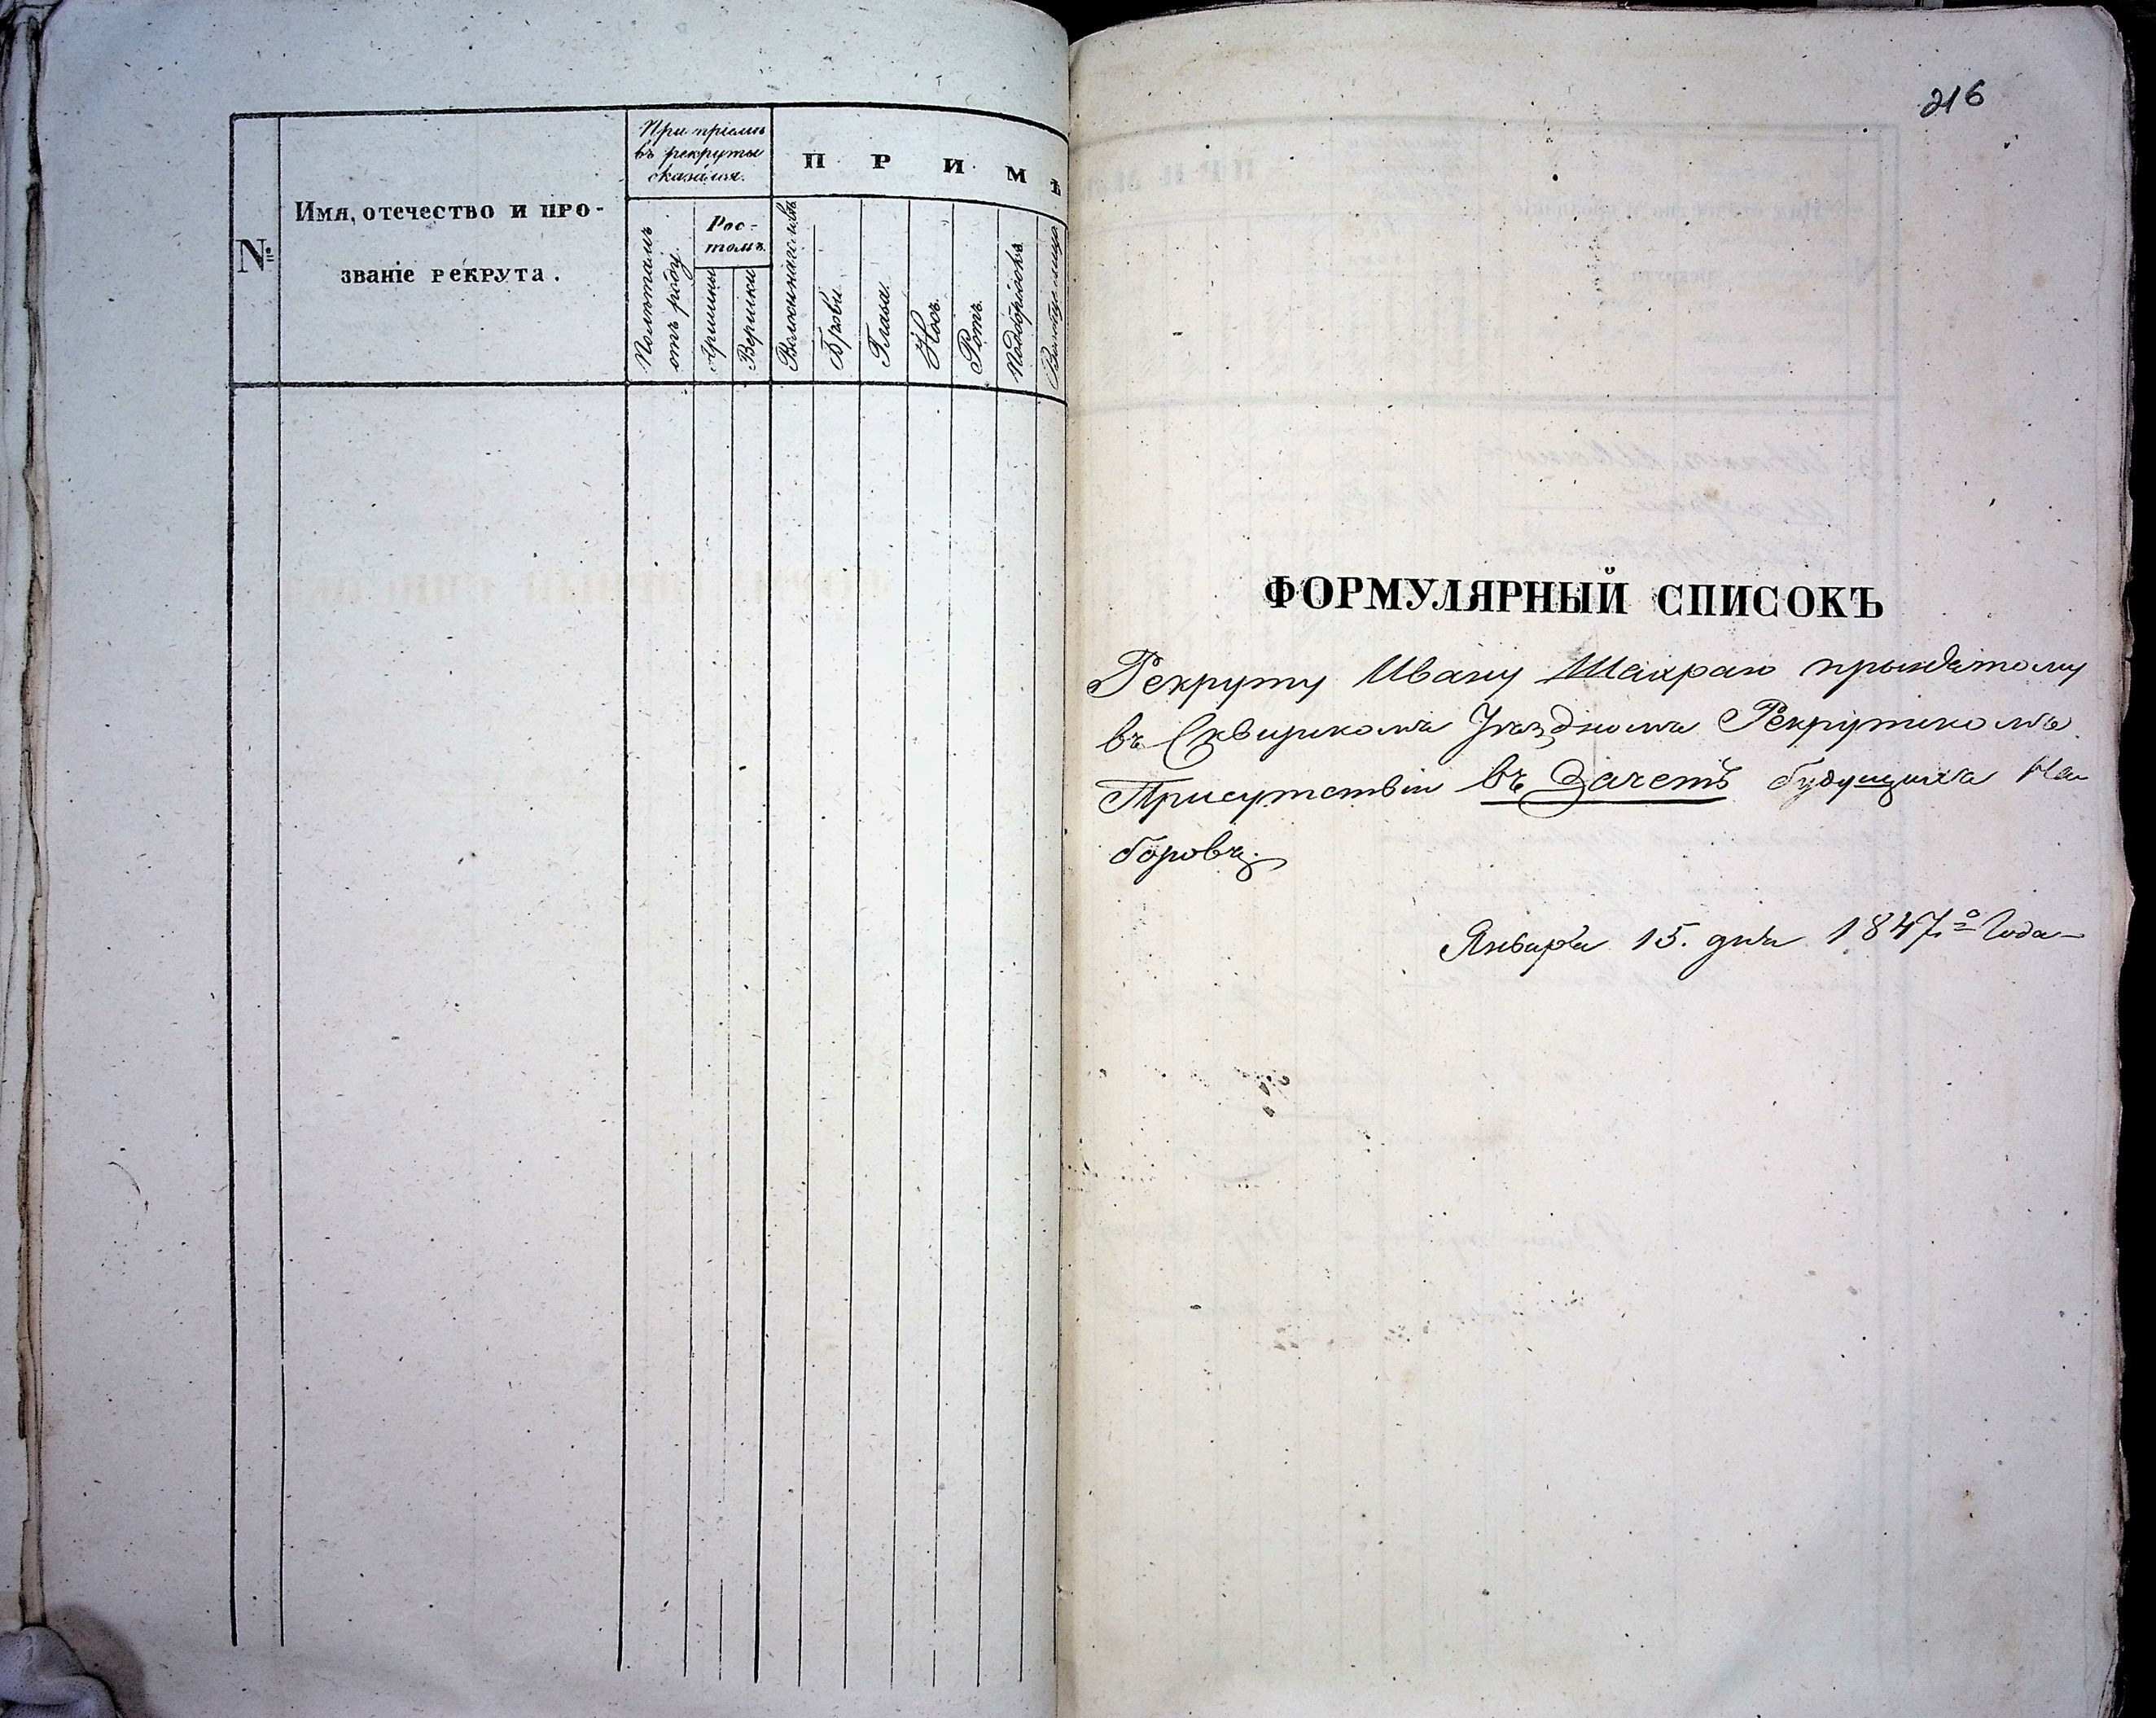 №
Имя, отечество и про-
званіе рекрута.
При пріемѣ
въ рекруты
сказался.
Полѣтамъ
отъ роду
Рос-
томъ.
Аршины
Вершки
П Р И М Ѣ
Брови
Глаза
Носъ
Ротъ
Подбородокъ
216
ФОРМУЛЯРНЫЙ СПИСОКЪ
Рекруту Ивану Шахраю прынятому
въ Сквирскомъ Уѣздномъ Рекрутскомъ
Присутствіи въ Зачетъ будущихъ На
боровъ
Января 15. дня 1847.º Года